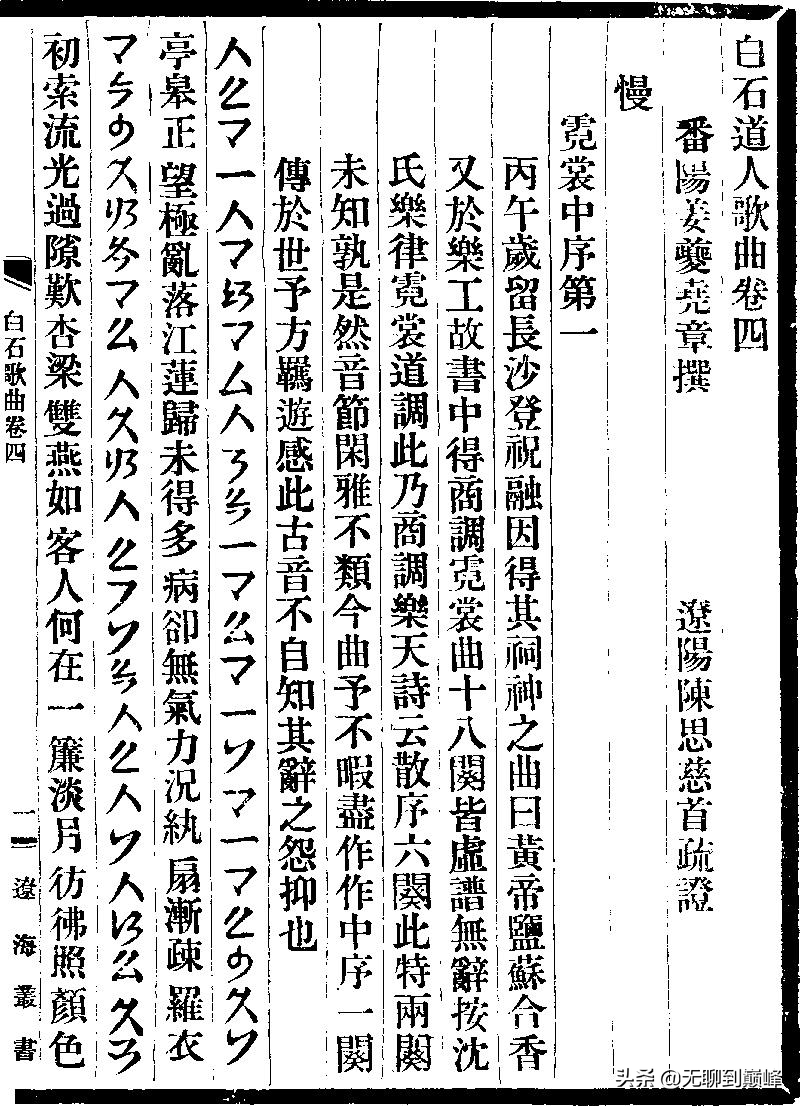 白石道人歌曲卷四
番陽姜夔堯章撰　遼陽陳思慈首疏證
慢
霓裳中序第一
丙午歲留長沙登祝融因得其祠神之曲曰黃帝鹽蘇合香
又於樂工故書中得商調霓裳曲十八闋皆虛譜無辭按沈
氏樂律霓裳道調此乃商調樂天詩云散序六闋此特兩闋
未知孰是然音節閑雅不類今曲予不暇盡作作中序一闋
傳於世予方羈遊感此古音不自知其辭之怨抑也
亭皋正望極亂落江蓮歸未得多病卻無氣力況紈扇漸疎羅衣
初索流光過隙歎杏梁雙燕如客人何在一簾淡月彷彿照顏色
白石歌曲卷四
一
遼海叢書
头条 @无聊到巅峰